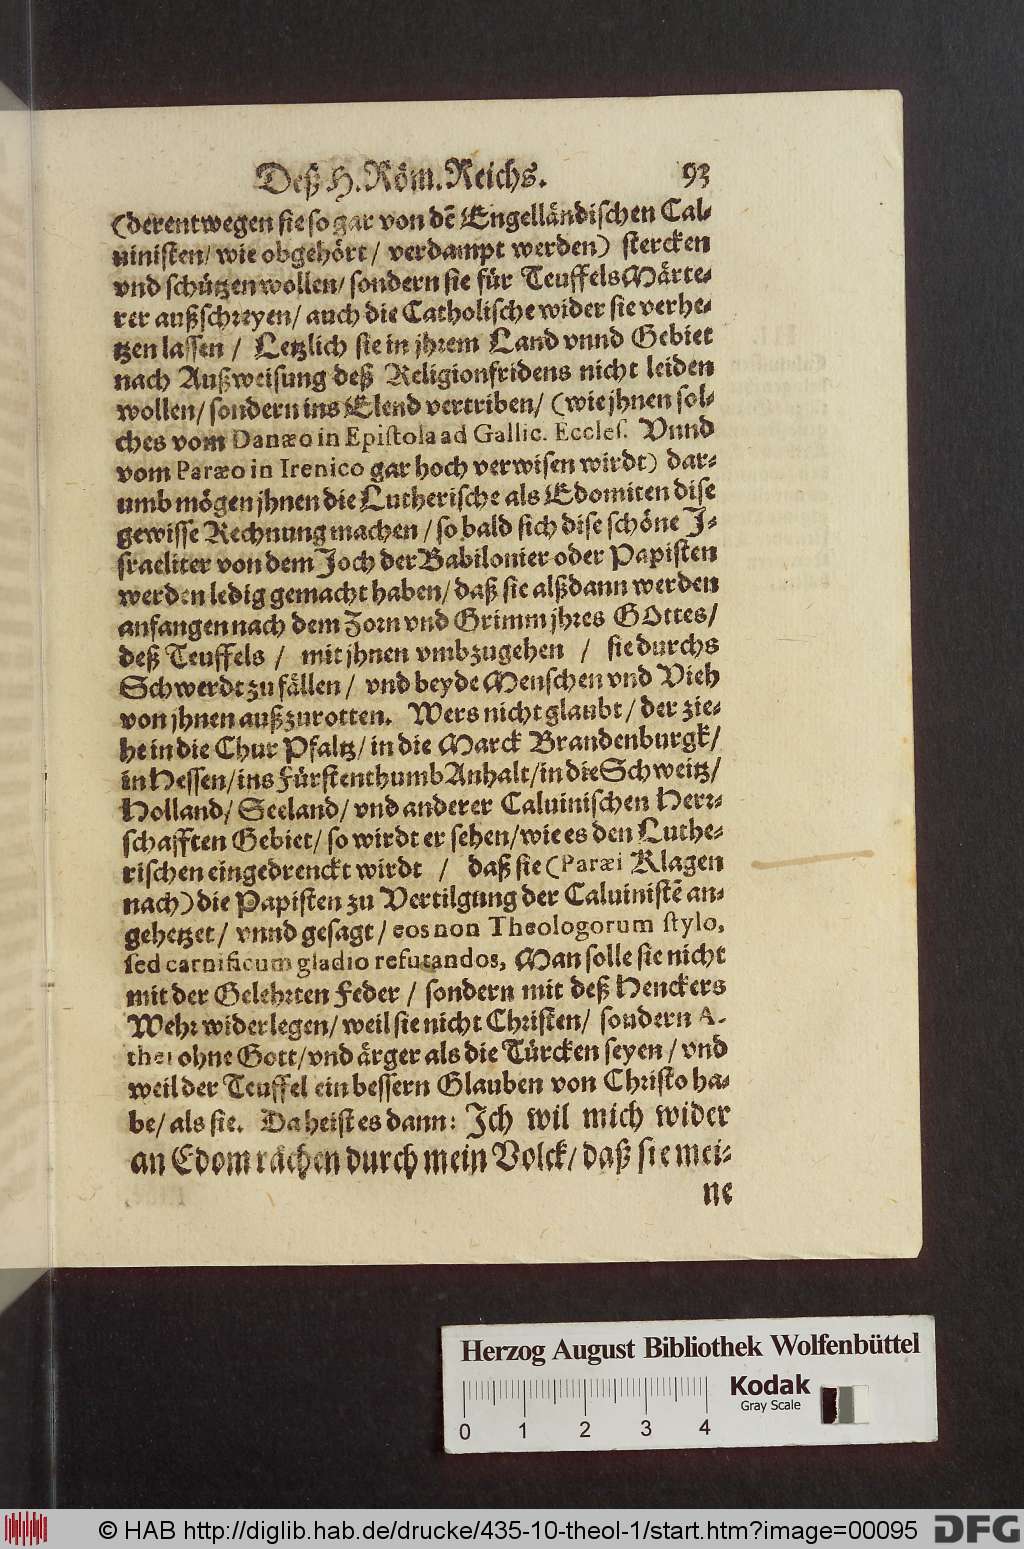 Deß H. Röm. Reichs. 93
(derentwegen sie so gar von dẽ Engelländischen Cal-
uinisten/ wie obgehört/ verdampt werden) stercken
vnd schützen wollen/ sondern sie für Teuffels Märte-
rer außschreyen/ auch die Catholische wider sie verhe-
tzen lassen / Letzlich sie in jhrem Land vnnd Gebiet
nach Außweisung deß Religionfridens nicht leiden
wollen/ sondern ins Elend vertriben/ (wie jhnen sol-
ches vom Danæo in Epistola ad Gallic. Eccles. Vnnd
vom Paræo in Irenico gar hoch verwisen wirdt) dar-
umb mögen jhnen die Lutherische als Edomiten dise
gewisse Rechnung machen / so bald sich dise schöne J-
sraeliter von dem Joch der Babilonier oder Papisten
werden ledig gemacht haben/ daß sie alßdann werden
anfangen nach dem Zorn vnd Grimm jhres GOttes/
deß Teuffels / mit jhnen vmbzugehen / sie durchs
Schwerdt zu fällen / vnd beyde Menschen vnd Vieh
von jhnen außzurotten. Wers nicht glaubt / der zie-
he in die Chur Pfaltz/ in die Marck Brandenburgk/
in Hessen/ ins Fürstenthumb Anhalt/ in die Schweitz/
Holland/ Seeland/ vnd anderer Caluinischen Herr-
schafften Gebiet/ so wirdt er sehen/ wie es den Luthe-
rischen eingedrenckt wirdt / daß sie (Paræi Klagen
nach) die Papisten zu Vertilgung der Caluinistẽ an-
gehetzet/ vnnd gesagt/ eos non Theologorum stylo,
sed carnificum gladio refutandos, Man solle sie nicht
mit der Gelehrten Feder / sondern mit deß Henckers
Wehr widerlegen/ weil sie nicht Christen/ sondern A-
thei ohne Gott/ vnd ärger als die Türcken seyen / vnd
weil der Teuffel ein bessern Glauben von Christo ha-
be/ als sie. Da heist es dann: Jch wil mich wider
an Edom rächen durch mein Volck/ daß sie mei-
ne
Herzog August Bibliothek Wolfenbüttel
Kodak
Gray Scale
0 1 2 3 4
© HAB http://diglib.hab.de/drucke/435-10-theol-1/start.htm?image=00095 DFG